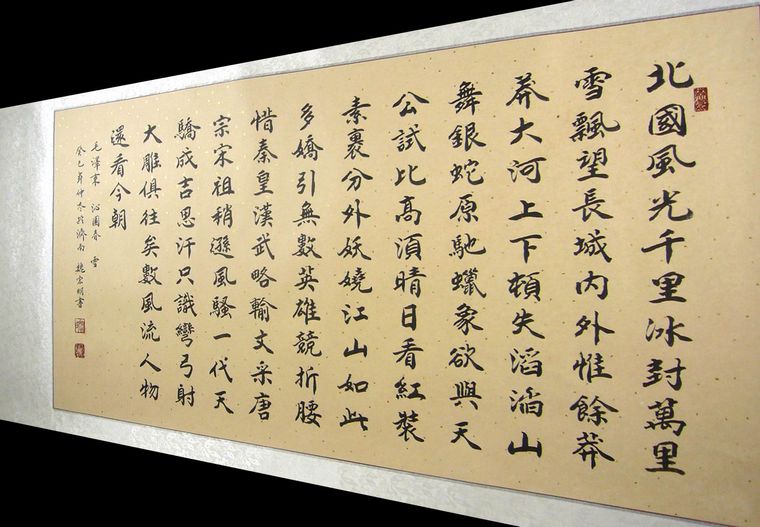 北國風光千里冰封萬里
雪飄望長城内外惟餘莽
莽大河上下頓失滔滔山
舞銀蛇原馳蠟象欲與天
公試比高須晴日看紅裝
素裹分外妖嬈江山如此
多嬌引無數英雄競折腰
惜秦皇漢武略輸文采唐
宗宋祖稍遜風騷一代天
驕成吉思汗只識彎弓射
大雕俱往矣數風流人物
還看今朝
毛澤東 沁園春 雪
癸巳年仲冬於濟南 明書